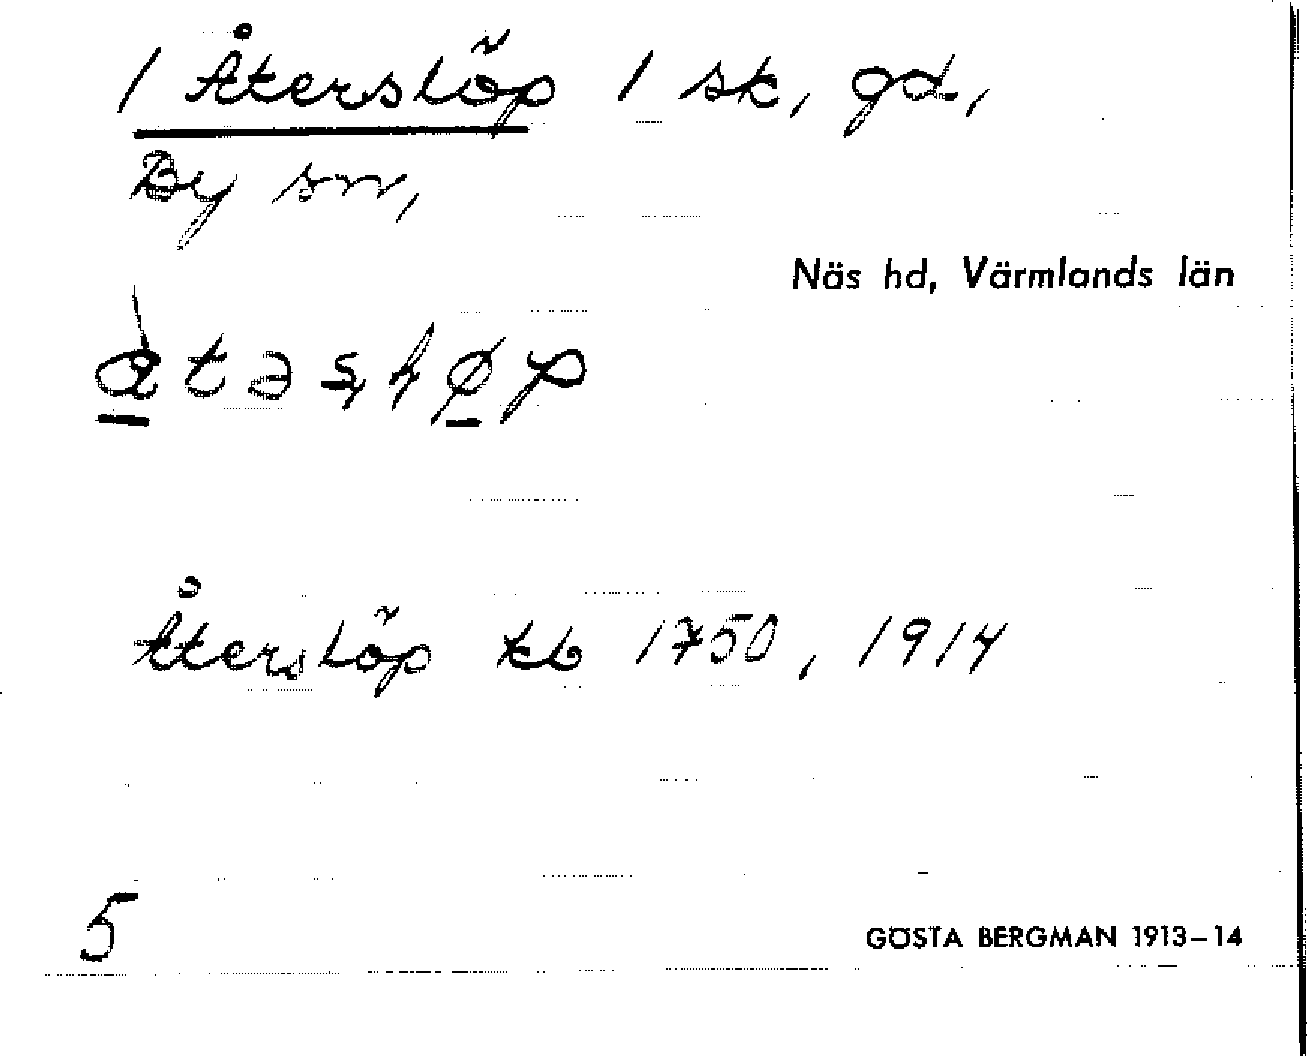 / Återslöp / sk, gd,
By sn,
Näs hd, Värmlands län
Återslöp kb 1750, 1914
5
GÖSTA BERGMAN 1913–14